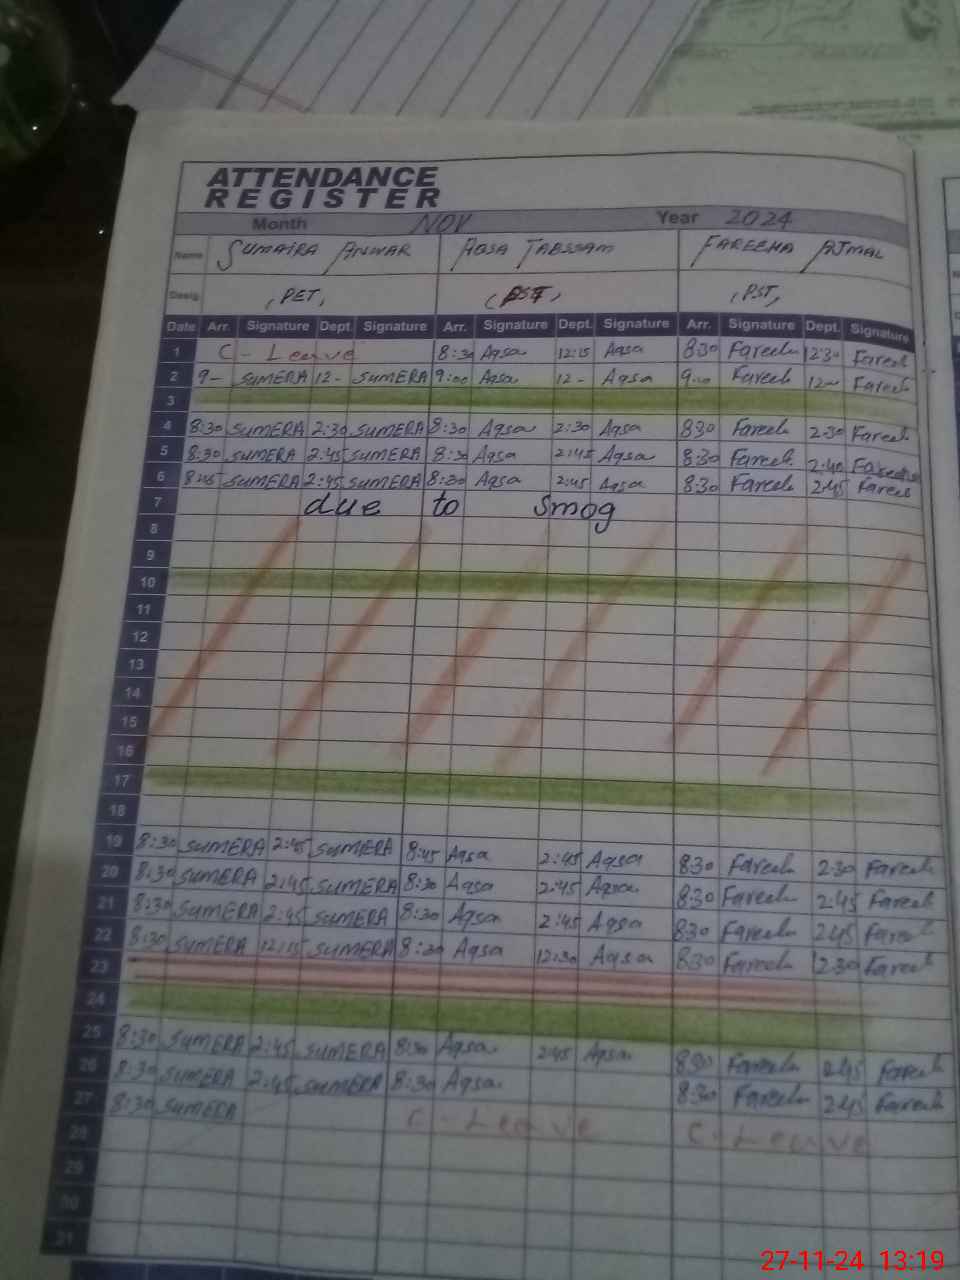 ATTENDANCE
REGISTER
Month NOV Year 2024
Name SUMAIRA ANWAR AQSA TABSSAM FAREEHA AJMAL
Desig (PET) (PST) (PST)
Date Arr. Signature Dept. Signature Arr. Signature Dept. Signature Arr. Signature Dept. Signature
1 C - Leave 8:30 Aqsa 12:15 Aqsa 8:30 Fareeh 12:30 Fareeh
2 9- SUMERA 12- SUMERA 9:00 Aqsa 12- Aqsa 9:00 Fareeh 12- Fareeh
3
4 8:30 SUMERA 2:30 SUMERA 8:30 Aqsa 2:30 Aqsa 8:30 Fareeh 2:30 Fareeh
5 8:30 SUMERA 2:45 SUMERA 8:30 Aqsa 2:45 Aqsa 8:30 Fareeh 2:40
6 8:45 SUMERA 2:45 SUMERA 8:30 Aqsa 2:45 Aqsa 8:30 Fareeh 2:45 Fareeh
7 due to smog
8
9
10
11
12
13
14
15
16
17
18
19 8:30 SUMERA 2:45 SUMERA 8:45 Aqsa 2:45 Aqsa 8:30 Fareeh 2:30 Fareeh
20 8:30 SUMERA 2:45 SUMERA 8:30 Aqsa 2:45 Aqsa 8:30 Fareeh 2:45 Fareeh
21 8:30 SUMERA 2:45 SUMERA 8:30 Aqsa 2:45 Aqsa 8:30 Fareeh 2:45 Fareeh
22 8:30 SUMERA 12:15 SUMERA 8:30 Aqsa 12:30 Aqsa 8:30 Fareeh 12:30 Fareeh
23
24
25 8:30 SUMERA 2:45 SUMERA 8:30 Aqsa 2:45 Aqsa 8:30 Fareeh 2:45 Fareeh
26 8:30 SUMERA 2:45 SUMERA 8:30 Aqsa 8:30 Fareeh 2:45 Fareeh
27 8:30 SUMERA C - Leave C - Leave
28
29
30
31
27-11-24 13:19